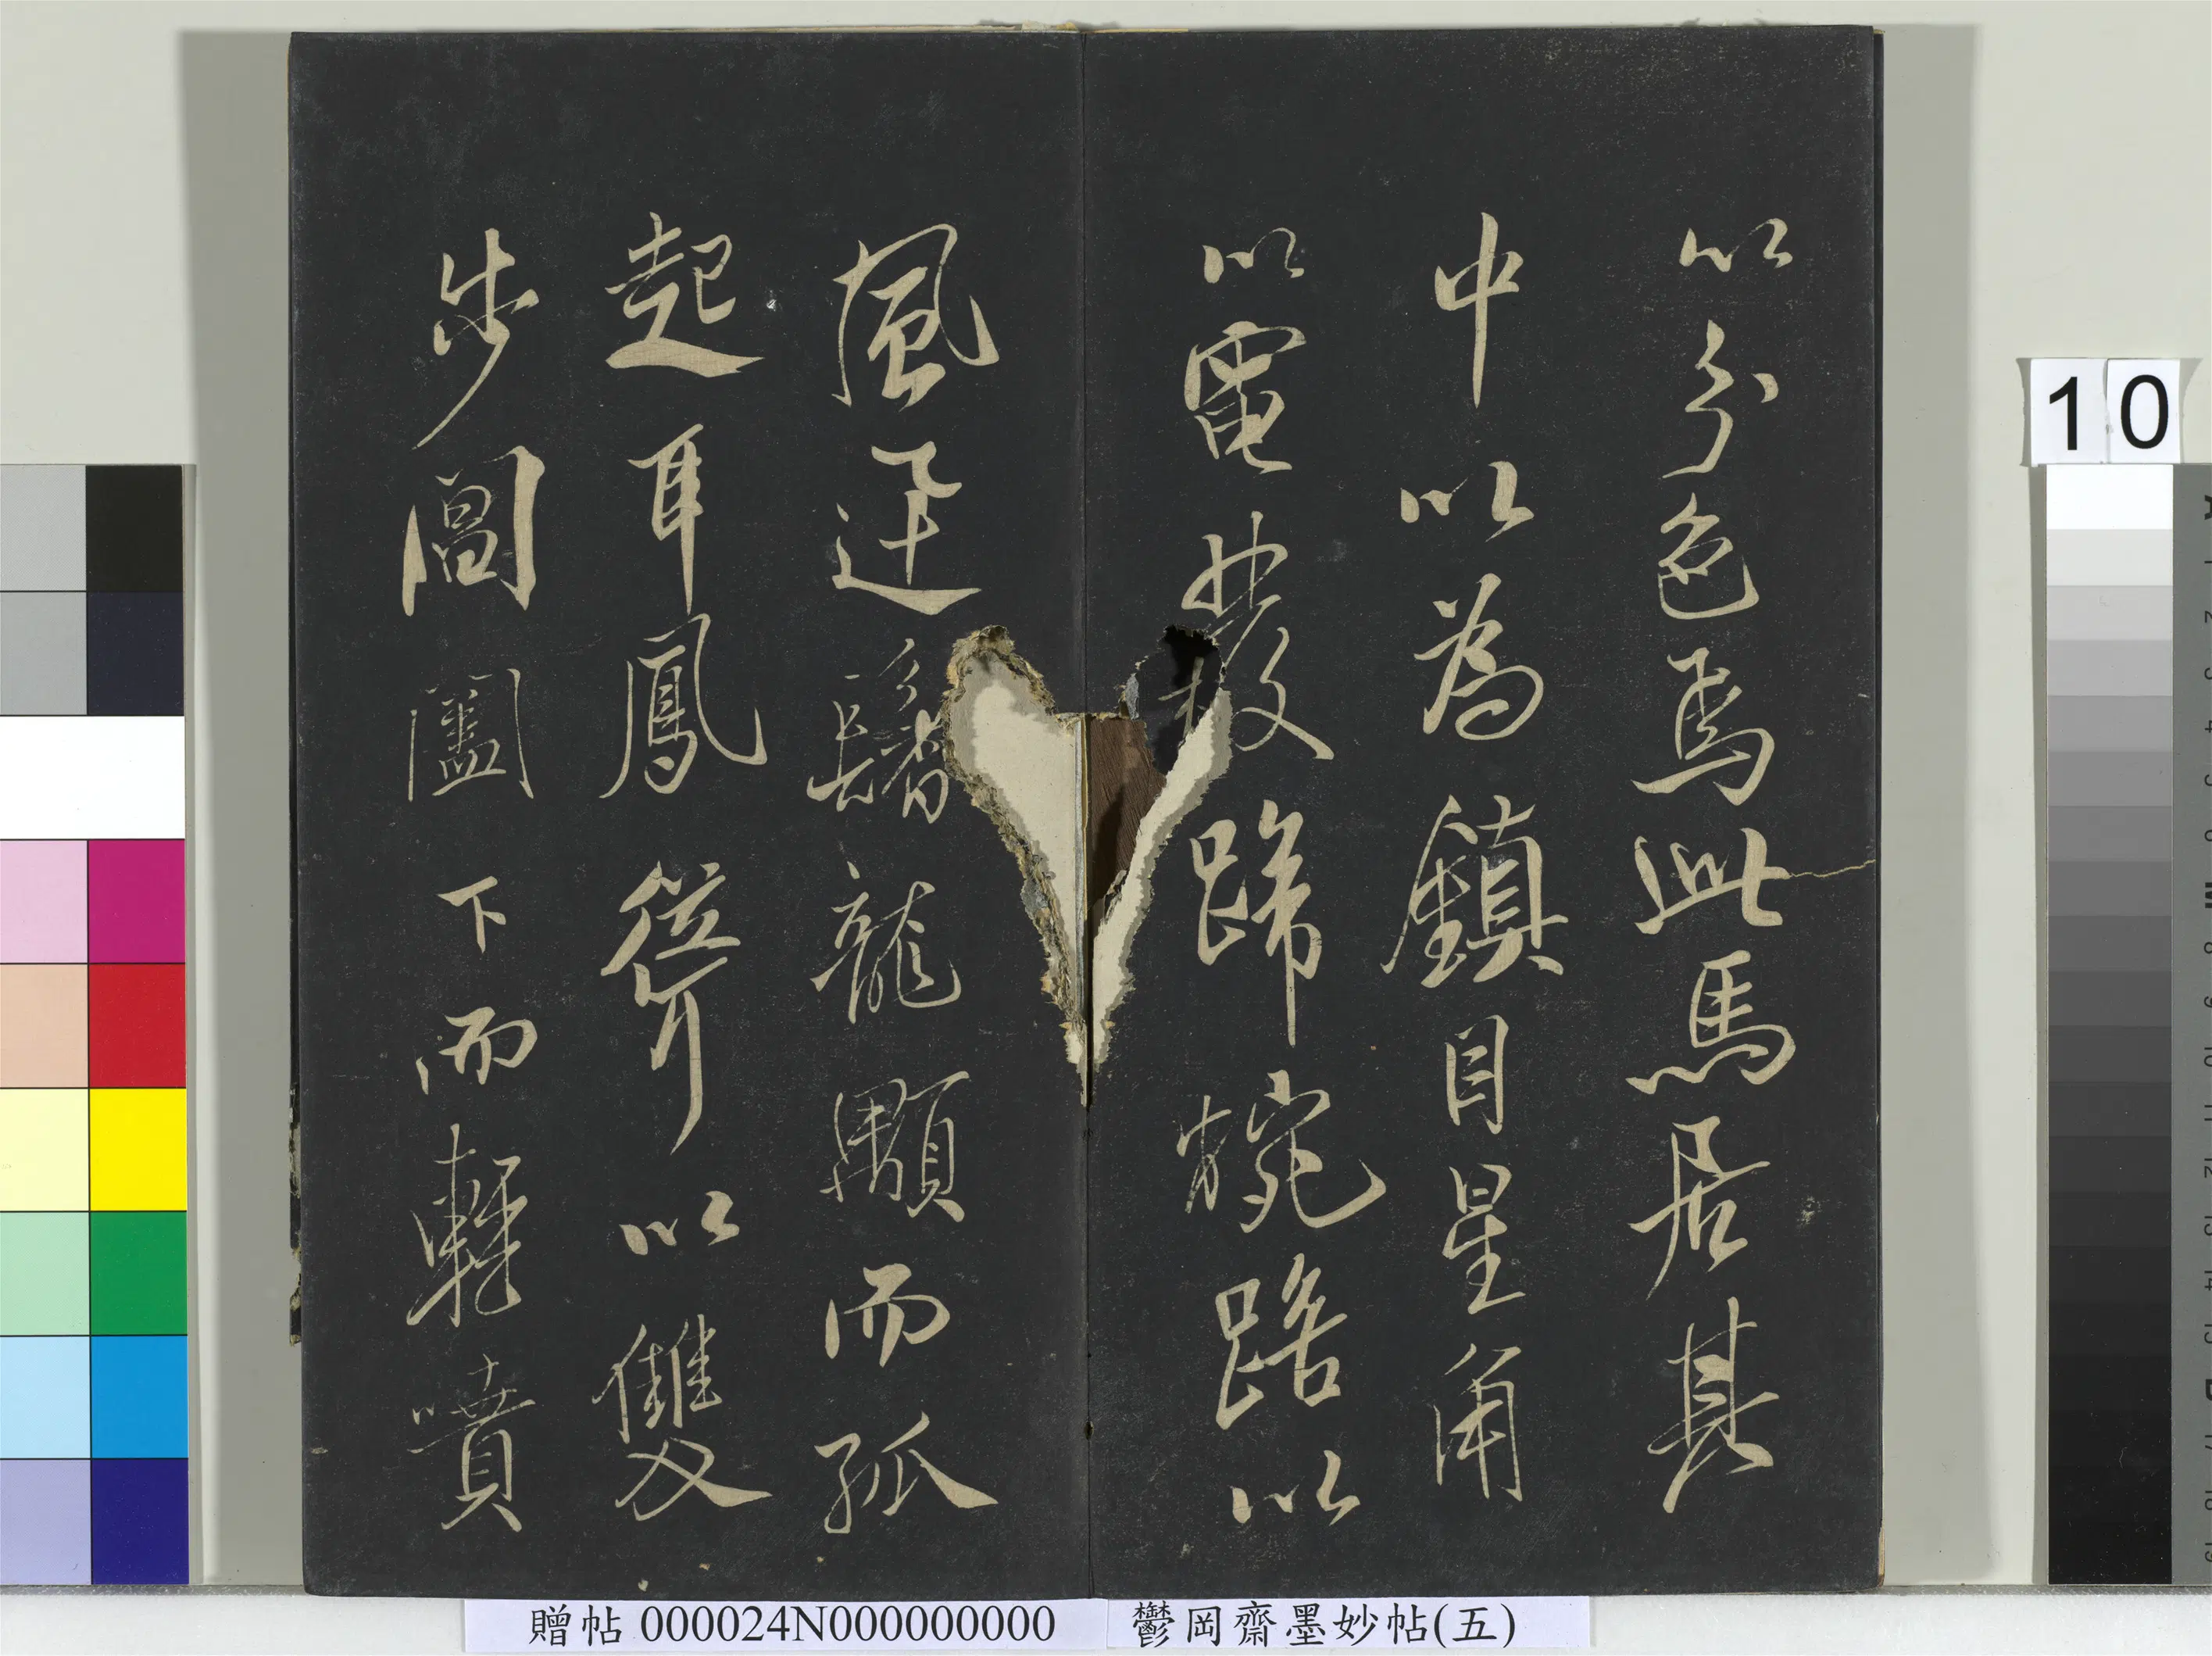 以分色焉此馬居其
中以為鎮目星角
以電發蹄椀踣以
風迅鬐龍顒而孤
起耳鳳聳以雙
步閶闔下而輕噴
10
贈帖 000024N000000000 鬱岡齋墨妙帖(五)